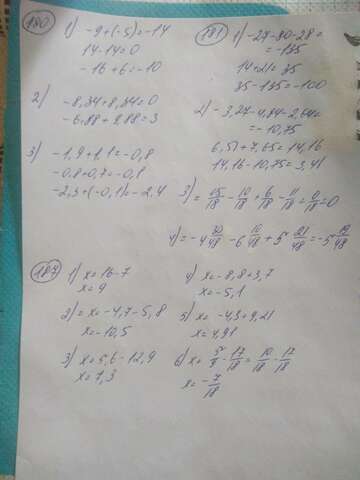 180
1) -9+(-5)=-14
14-14=0
-16+6=-10
2) -8,34+8,34=0
-6,88+9,88=3
3) -1,9+1,1=-0,8
-0,8+0,7=-0,1
-2,3+(-0,1)=-2,4
181
1) -27-80-28=
=-135
14+21=35
35-135=-100
2) -3,27-4,84-2,64=
=-10,75
6,51+7,65=14,16
14,16-10,75=3,41
3) = 15/18 - 10/18 + 6/18 - 11/18 = 0/18 = 0
4) = -4 30/48 - 6 10/48 + 5 21/48 = -5 19/48
187
1) x=16-7
x=9
2) = x=-4,7-5,8
x=-10,5
3) x=5,6-12,9
x=7,3
4) x=-8,8+3,7
x=-5,1
5) x= -4,3+9,21
x=4,91
6) x= 5/9 - 17/18 = 10/18 - 17/18
x= -7/18